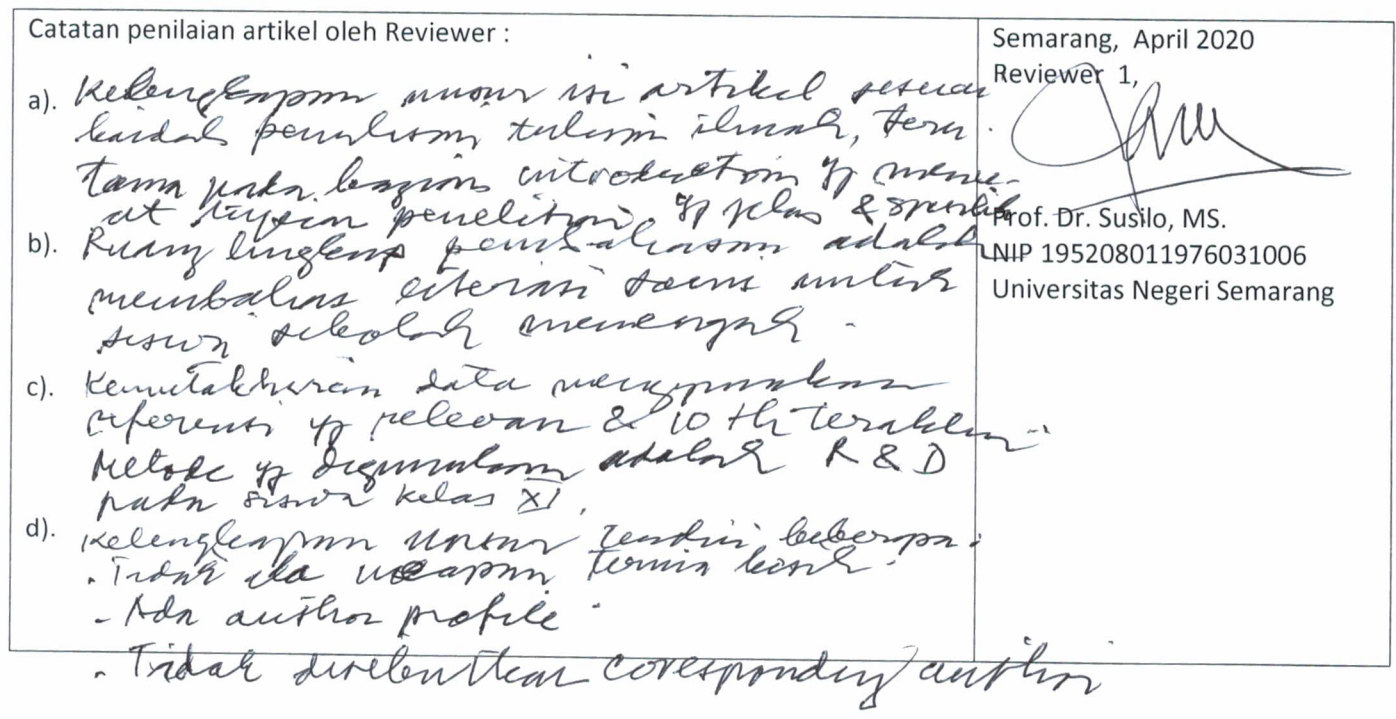 Catatan penilaian artikel oleh Reviewer :
a). Kelengkapan unsur isi artikel sesuai
kaidah penulisan tulisan ilmiah, teru
tama pada bagian introduction yg memu-
at tujuan penelitian yg jelas & spesifik
b). Ruang lingkup pembahasan adalah
membahas literasi sains untuk
siswa sekolah menengah.
c). Kemutakhiran data menggunakan
referensi yg relevan & 10 th terakhir.
Metode yg digunakan adalah R & D
pada siswa kelas XI.
d). Kelengkapan unsur terdiri beberapa:
- Tidak ada ucapan terima kasih.
- Ada author profile
- Tidak disebutkan coresponding author
Semarang, April 2020
Reviewer 1,
Prof. Dr. Susilo, MS.
NIP 195208011976031006
Universitas Negeri Semarang